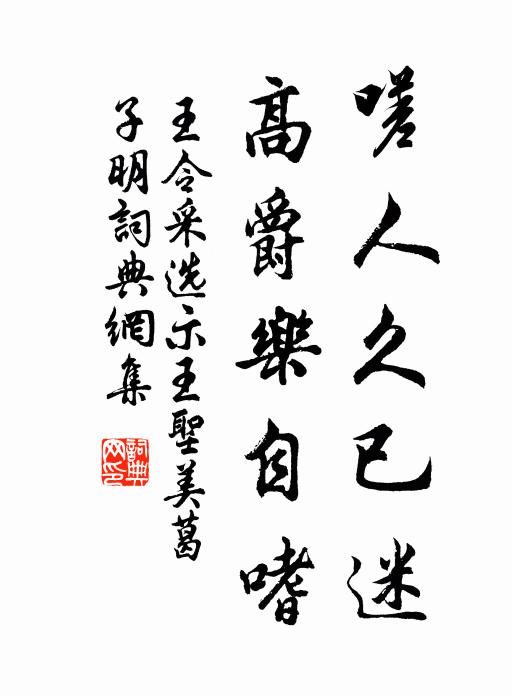 嗟人久已迷
高爵樂自嗜
王令采选示王聖美葛
子明詞典網集
詞典網印